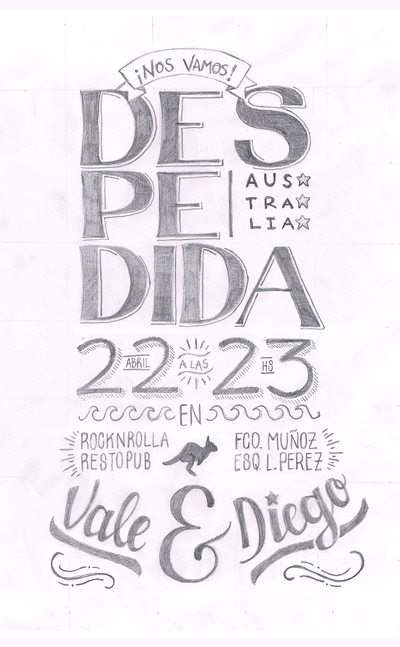 ¡NOS VAMOS!
DES
PE
AUS
TRA
LIA
DIDA
22 ABRIL A LAS 23 HS
EN
ROCKNROLLA
RESTOPUB
FCO. MUÑOZ
ESQ. L. PEREZ
Vale & Diego